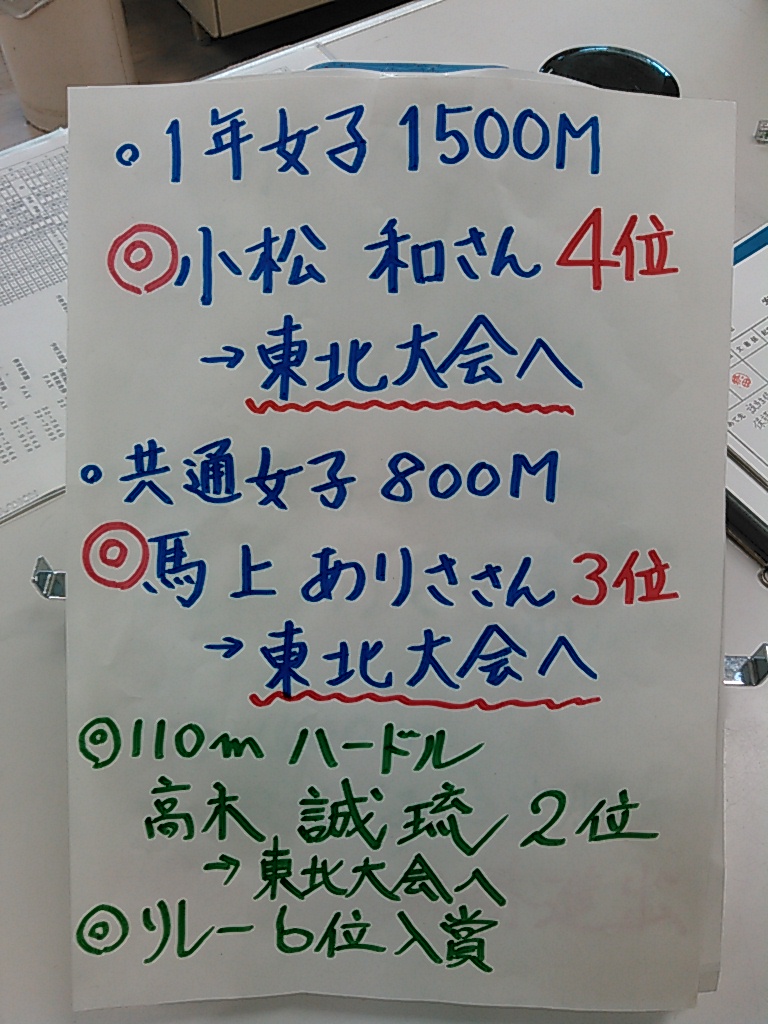 。1年女子 1500M
◎小松 和さん 4位
→東北大会へ
。共通女子 800M
◎馬上 ありささん 3位
→東北大会へ
◎110m ハードル
高木 誠琉 2位
→東北大会へ
◎リレー 6位入賞